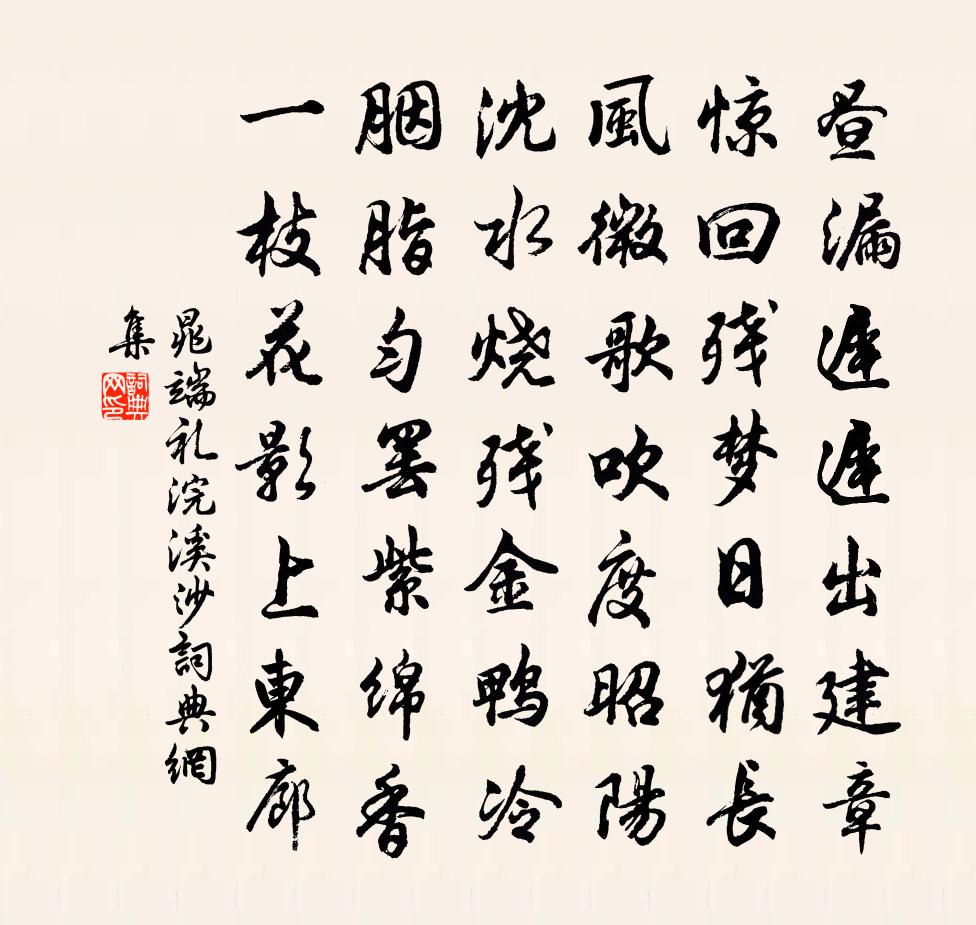 昼漏遲遲出建章
惊回残梦日猶長
風微歌吹度昭陽
沈水烧残金鴨冷
胭脂匀罢紫绵香
一枝花影上東廊
晁端礼浣溪沙詞典網
集
詞典网印